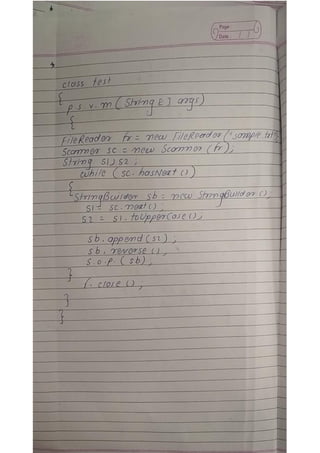 Page
Date
class test
{
p s. v. m ( String [] args)
{
FileReader fr = new FileReader ("sample.txt");
Scanner sc = new Scanner (fr);
String s1, s2;
while (sc.hasNext ())
{
StringBuilder sb = new StringBuilder ();
s1 = sc.next ();
s2 = s1.toUpperCase ();
sb.append (s2);
sb.reverse ();
s.o.p. (sb);
}
f.close ();
}
}